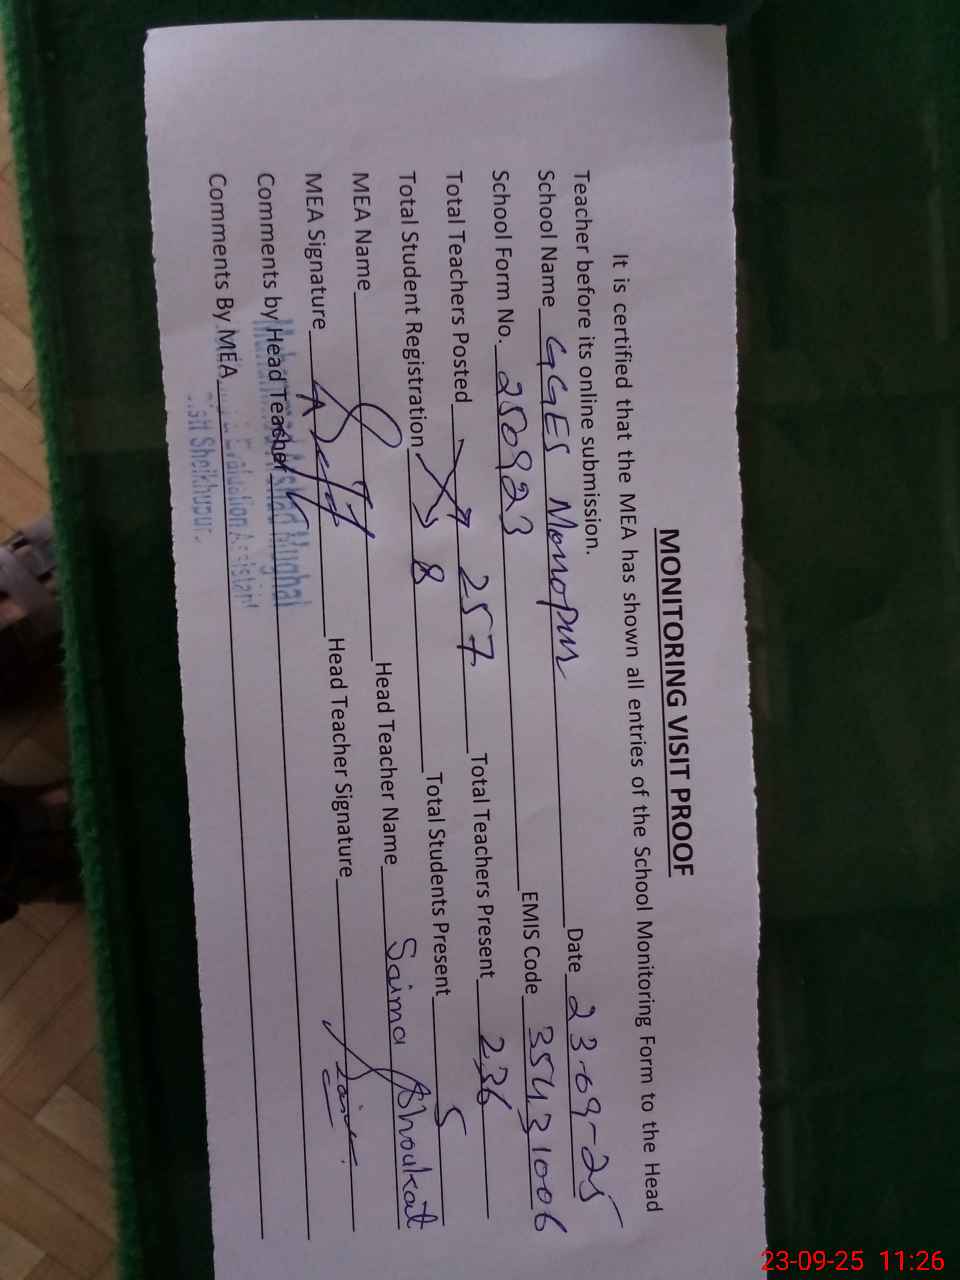 MONITORING VISIT PROOF
It is certified that the MEA has shown all entries of the School Monitoring Form to the Head
Teacher before its online submission.
School Name GGES Date 23-09-25
School Form No. 250923 EMIS Code 35431006
Total Teachers Posted 257 Total Teachers Present 236
Total Student Registration 8 Total Students Present 5
MEA Name Head Teacher Name Saima Shoukat
MEA Signature Head Teacher Signature
Comments by Head Teacher
Comments By MEA
Arshad Mughal
Evaluation Assistant
Sheikhupur
23-09-25 11:26